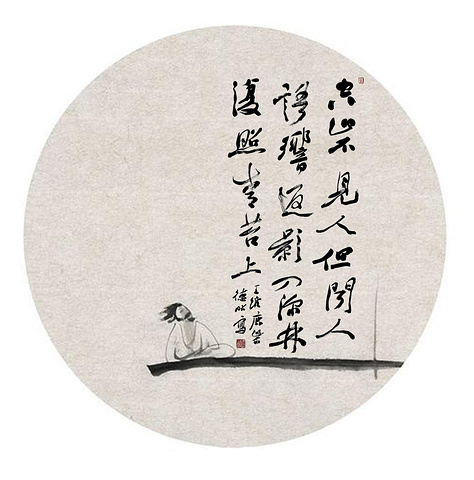 空山不見人但聞人
語響返影入深林
復照青苔上
王維鹿柴